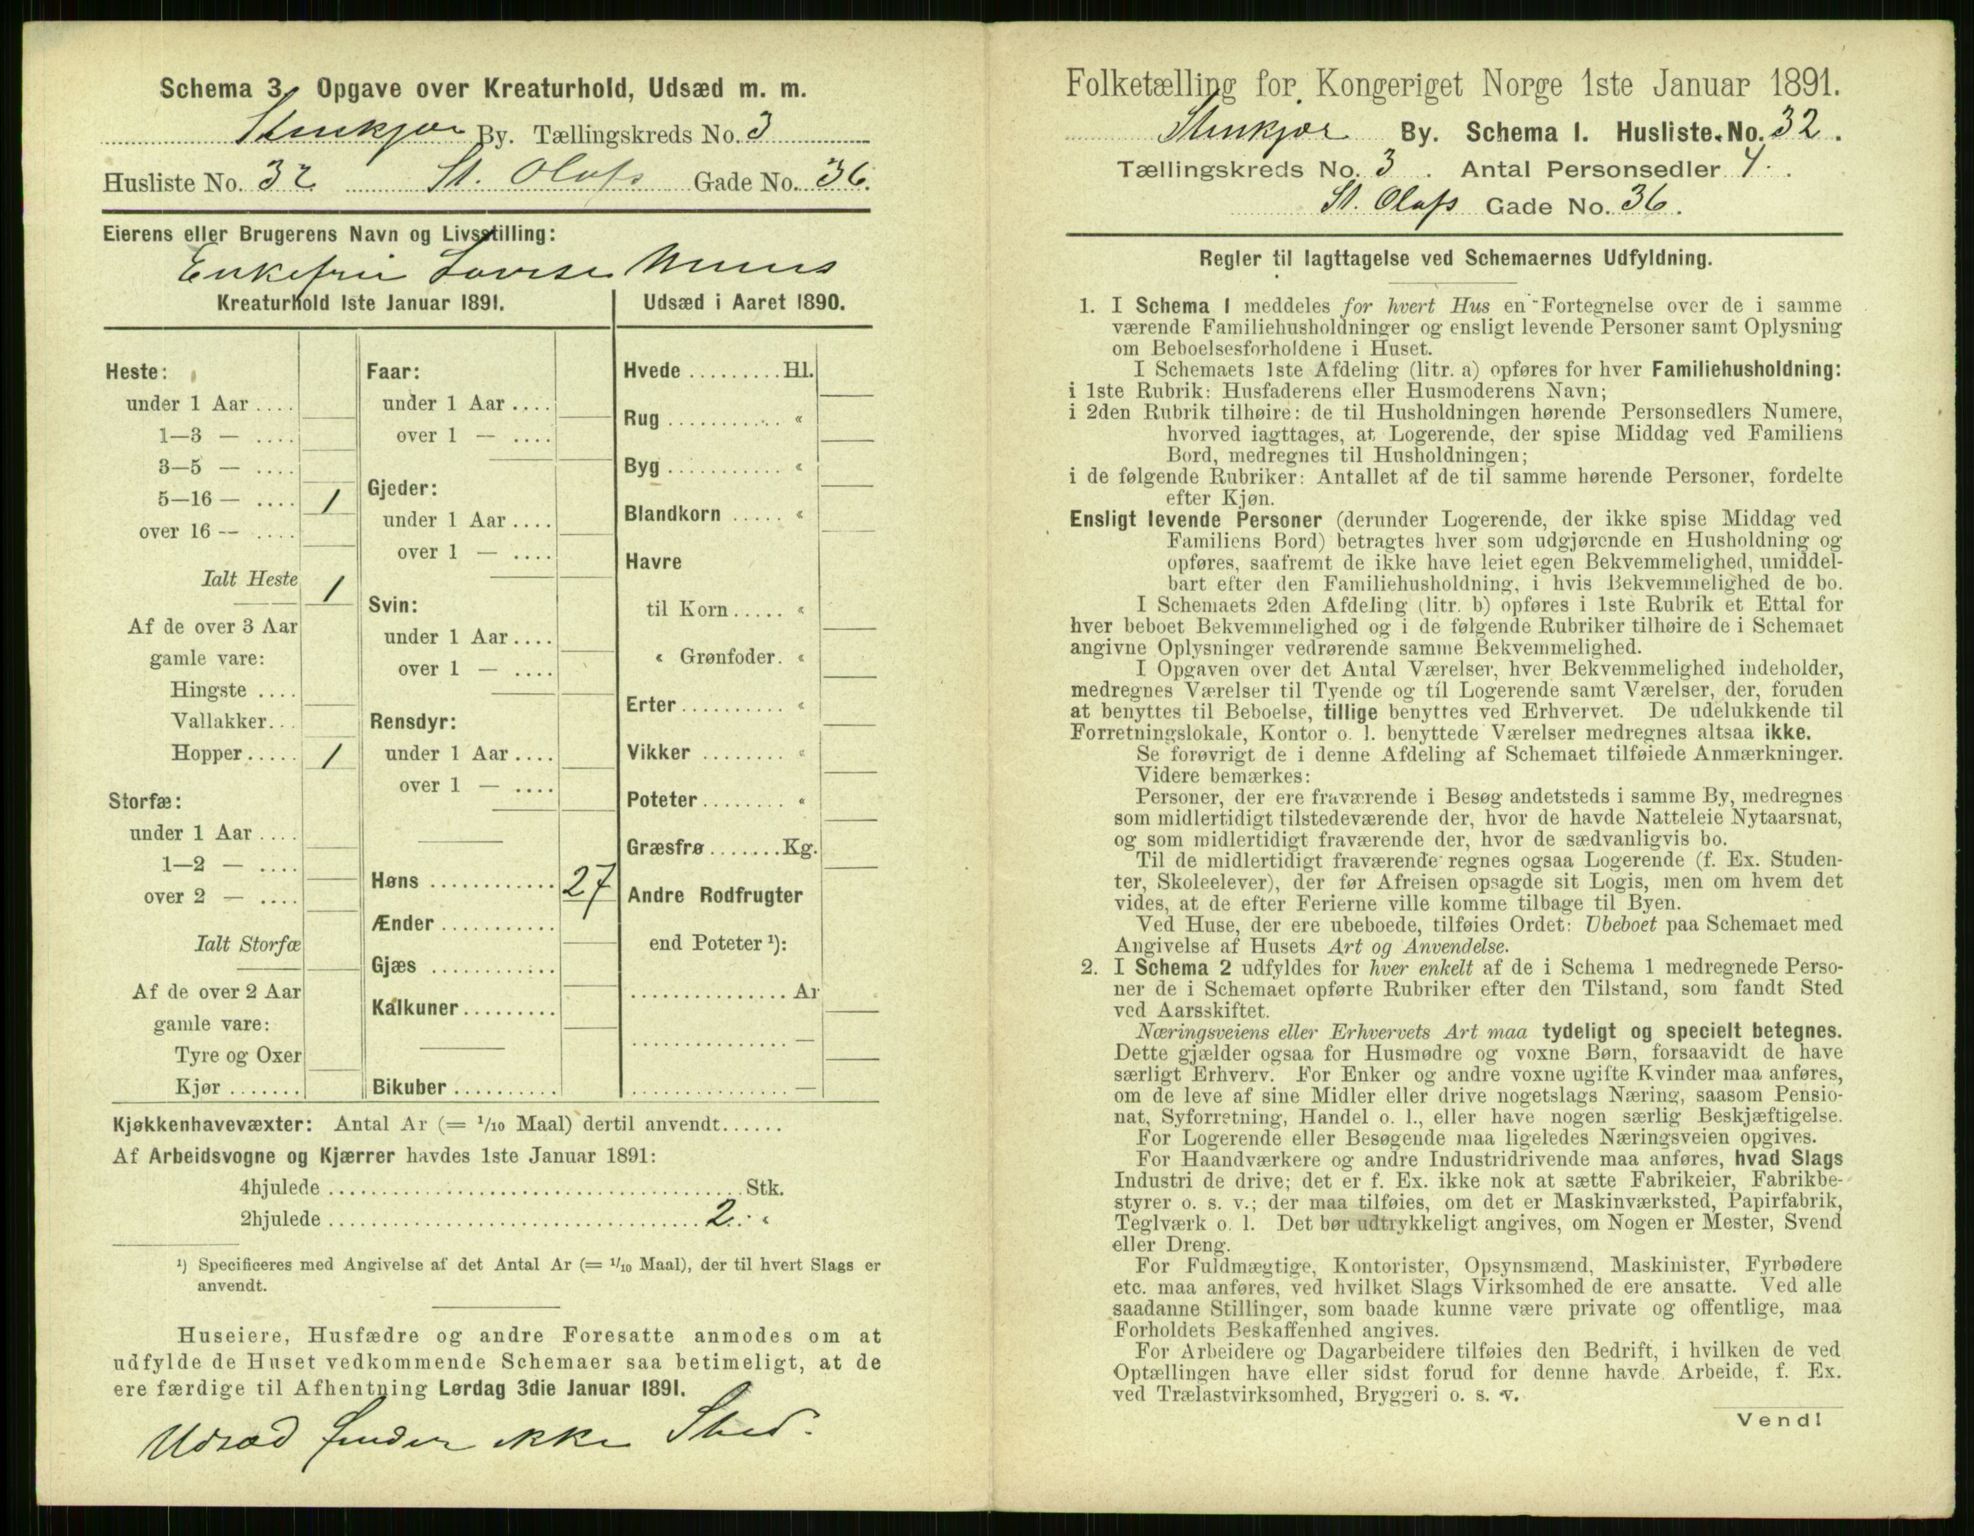 Schema 3. Opgave over Kreaturhold, Udsæd m. m.
Stenkjær By. Tællingskreds No. 3
Husliste No. 32 St. Olafs Gade No. 36.
Eierens eller Brugerens Navn og Livsstilling:
Enkefru Lovise
Kreaturhold 1ste Januar 1891.
Heste:
under 1 Aar ....
1—3 — ....
3—5 — ....
5—16 — .... 1
over 16 — ....
Ialt Heste 1
Af de over 3 Aar
gamle vare:
Hingste ....
Vallakker...
Hopper..... 1
Storfæ:
under 1 Aar ....
1—2 — ....
over 2 — ....
Ialt Storfæ
Af de over 2 Aar
gamle vare:
Tyre og Oxer
Kjør .......
Faar:
under 1 Aar ....
over 1 — ....
Gjeder:
under 1 Aar ....
over 1 — ....
Svin:
under 1 Aar ....
over 1 — ....
Rensdyr:
under 1 Aar ....
over 1 — ....
Høns ............ 27
Ænder ...........
Gjæs ............
Kalkuner.........
Bikuber ..........
Udsæd i Aaret 1890.
Hvede ......... Hl.
Rug ........... «
Byg ........... «
Blandkorn ..... «
Havre
til Korn ..... «
« Grønfoder. «
Erter.......... «
Vikker ........ «
Poteter........ «
Græsfrø....... Kg.
Andre Rodfrugter
end Poteter ¹):
............... Ar
............... —
............... —
Kjøkkenhavevæxter: Antal Ar (= 1/10 Maal) dertil anvendt......
Af Arbeidsvogne og Kjærrer havdes 1ste Januar 1891:
4hjulede ........................................ Stk.
2hjulede .................................... 2. «
¹) Specificeres med Angivelse af det Antal Ar (= 1/10 Maal), der til hvert Slags er
anvendt.
Huseiere, Husfædre og andre Foresatte anmodes om at
udfylde de Huset vedkommende Schemaer saa betimeligt, at de
ere færdige til Afhentning Lørdag 3die Januar 1891.
Udsæd finder ikke Sted.
Folketælling for Kongeriget Norge 1ste Januar 1891.
Stenkjær By. Schema 1. Husliste No. 32.
Tællingskreds No. 3. Antal Personsedler 4.
St. Olafs Gade No. 36.
Regler til Iagttagelse ved Schemaernes Udfyldning.
1. I Schema 1 meddeles for hvert Hus en Fortegnelse over de i samme
værende Familiehusholdninger og ensligt levende Personer samt Oplysning
om Beboelsesforholdene i Huset.
I Schemaets 1ste Afdeling (litr. a) opføres for hver Familiehusholdning:
i 1ste Rubrik: Husfaderens eller Husmoderens Navn;
i 2den Rubrik tilhøire: de til Husholdningen hørende Personsedlers Numere,
hvorved iagttages, at Logerende, der spise Middag ved Familiens
Bord, medregnes til Husholdningen;
i de følgende Rubriker: Antallet af de til samme hørende Personer, fordelte
efter Kjøn.
Ensligt levende Personer (derunder Logerende, der ikke spise Middag ved
Familiens Bord) betragtes hver som udgjørende en Husholdning og
opføres, saafremt de ikke have leiet egen Bekvemmelighed, umiddel-
bart efter den Familiehusholdning, i hvis Bekvemmelighed de bo.
I Schemaets 2den Afdeling (litr. b) opføres i 1ste Rubrik et Ettal for
hver beboet Bekvemmelighed og i de følgende Rubriker tilhøire de i Schemaet
angivne Oplysninger vedrørende samme Bekvemmelighed.
I Opgaven over det Antal Værelser, hver Bekvemmelighed indeholder,
medregnes Værelser til Tyende og til Logerende samt Værelser, der, foruden
at benyttes til Beboelse, tillige benyttes ved Erhvervet. De udelukkende til
Forretningslokale, Kontor o. l. benyttede Værelser medregnes altsaa ikke.
Se forøvrigt de i denne Afdeling af Schemaet tilføiede Anmærkninger.
Videre bemærkes:
Personer, der ere fraværende i Besøg andetsteds i samme By, medregnes
som midlertidigt tilstedeværende der, hvor de havde Natteleie Nytaarsnat,
og som midlertidigt fraværende der, hvor de sædvanligvis bo.
Til de midlertidigt fraværende regnes ogsaa Logerende (f. Ex. Studen-
ter, Skoleelever), der før Afreisen opsagde sit Logis, men om hvem det
vides, at de efter Ferierne ville komme tilbage til Byen.
Ved Huse, der ere ubeboede, tilføies Ordet: Ubeboet paa Schemaet med
Angivelse af Husets Art og Anvendelse.
2. I Schema 2 udfyldes for hver enkelt af de i Schema 1 medregnede Perso-
ner de i Schemaet opførte Rubriker efter den Tilstand, som fandt Sted
ved Aarsskiftet.
Næringsveiens eller Erhvervets Art maa tydeligt og specielt betegnes.
Dette gjælder ogsaa for Husmødre og voxne Børn, forsaavidt de have
særligt Erhverv. For Enker og andre voxne ugifte Kvinder maa anføres,
om de leve af sine Midler eller drive nogetslags Næring, saasom Pensio-
nat, Syforretning, Handel o. l., eller have nogen særlig Beskjæftigelse.
For Logerende eller Besøgende maa ligeledes Næringsveien opgives.
For Haandværkere og andre Industridrivende maa anføres, hvad Slags
Industri de drive; det er f. Ex. ikke nok at sætte Fabrikeier, Fabrikbe-
styrer o. s. v.; der maa tilføies, om det er Maskinværksted, Papirfabrik,
Teglværk o. l. Det bør udtrykkeligt angives, om Nogen er Mester, Svend
eller Dreng.
For Fuldmægtige, Kontorister, Opsynsmænd, Maskinister, Fyrbødere
etc. maa anføres, ved hvilket Slags Virksomhed de ere ansatte. Ved alle
saadanne Stillinger, som baade kunne være private og offentlige, maa
Forholdets Beskaffenhed angives.
For Arbeidere og Dagarbeidere tilføies den Bedrift, i hvilken de ved
Optællingen have eller sidst forud for denne havde Arbeide, f. Ex.
ved Trælastvirksomhed, Bryggeri o. s. v.
Vend!